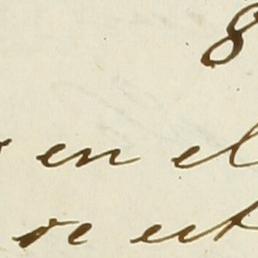 8
en el
re est